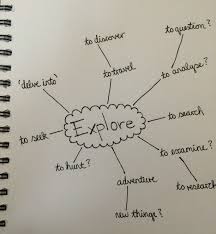 to question?
to discover
to analyse?
to travel
'delve into'
to search
Explore
to seek
to examine?
to hunt?
adventure
to research
new things?